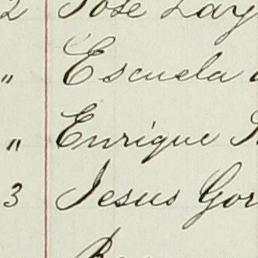 2 Jose Lay
" Escuela
" Enrique
3 Jesus Gor